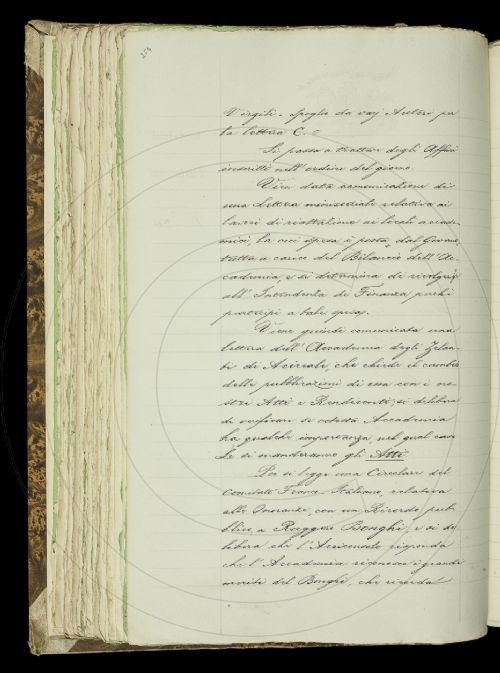 254
Virgili - spoglio da varj Autori per
la lettera C. =
Si passa a trattare degli Affari
inscritti nell'ordine del giorno.
Vien data comunicazione di
una lettera ministeriale relativa ai
lavori di riattazione ai locali accade-
mici, la cui spesa è posta dal Governo
tutta a carico del Bilancio dell'Ac-
cademia, e si determina di rivolgersi
all'Intendenza di Finanza perchè
partecipi a tale spesa.
Viene quindi comunicata una
lettera dell'Accademia degli Zelan-
ti di Acireale, che chiede il cambio
delle pubblicazioni di essa con i no-
stri Atti e Rendiconti; si delibera
di verificare se codesta Accademia
ha qualche importanza, nel qual caso
le si manderanno gli Atti.
Poi si legge una Circolare del
Comitato Franco-Italiano, relativa
alle Onoranze, con un Ricordo pub-
blico, a Ruggero Bonghi, e si de-
libera che l'Arciconsolo risponda
che l'Accademia riconosce i grandi
meriti del Bonghi, che ricorda